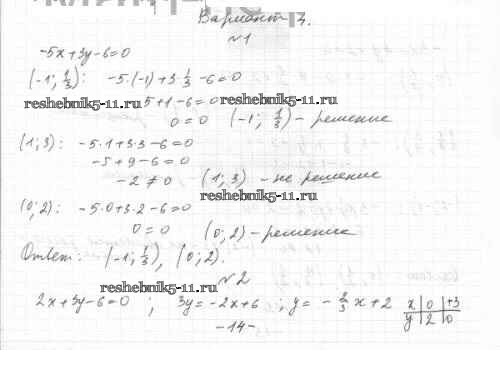 Вариант 4.
№1
-5x+3y-6=0
(-1; 1/3): -5·(-1)+3·1/3-6=0
reshebnik5-11.ru 5+1-6=0 reshebnik5-11.ru
0=0 (-1; 1/3) - решение
(1; 3): -5·1+3·3-6=0
-5+9-6=0
-2≠0 (1; 3) - не решение
reshebnik5-11.ru
(0; 2): -5·0+3·2-6=0
0=0 (0; 2) - решение
Ответ: (-1; 1/3), (0; 2).
№2
reshebnik5-11.ru
2x+3y-6=0 ; 3y=-2x+6 ; y= -2/3 x+2 x 0 +3
y 2 0
-14-